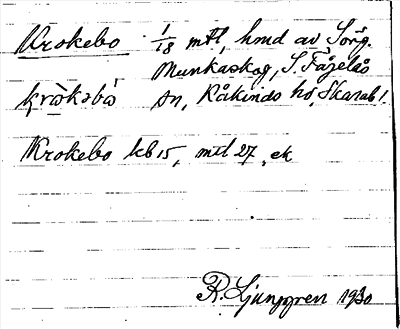 Krokebo 1/18 mtl, hmd av Sörg.
Munkaskog, S. Fågelås
krò̀kəbó sn, Kåkinds hd, Skarab l.
Krokebo kb 15, mtl 27, ek
R. Ljunggren 1930